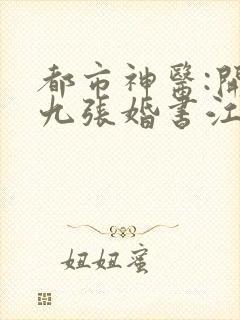 都市神醫:開
九張婚書江
妞妞蜜